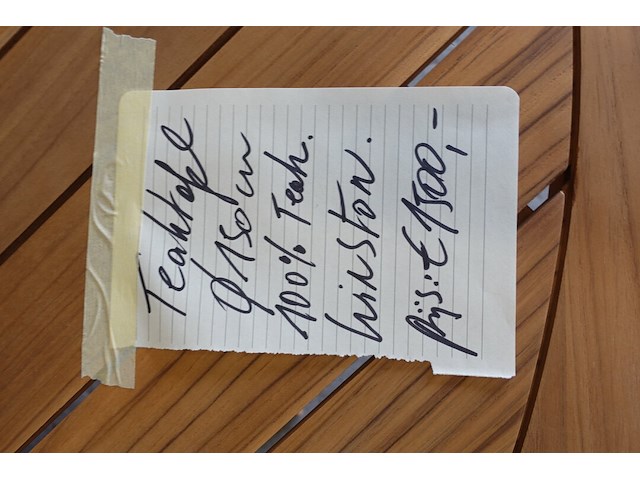 Teaktafel
Ø 150 cm
100% Teak.
Winston.
Prijs: € 1500,-